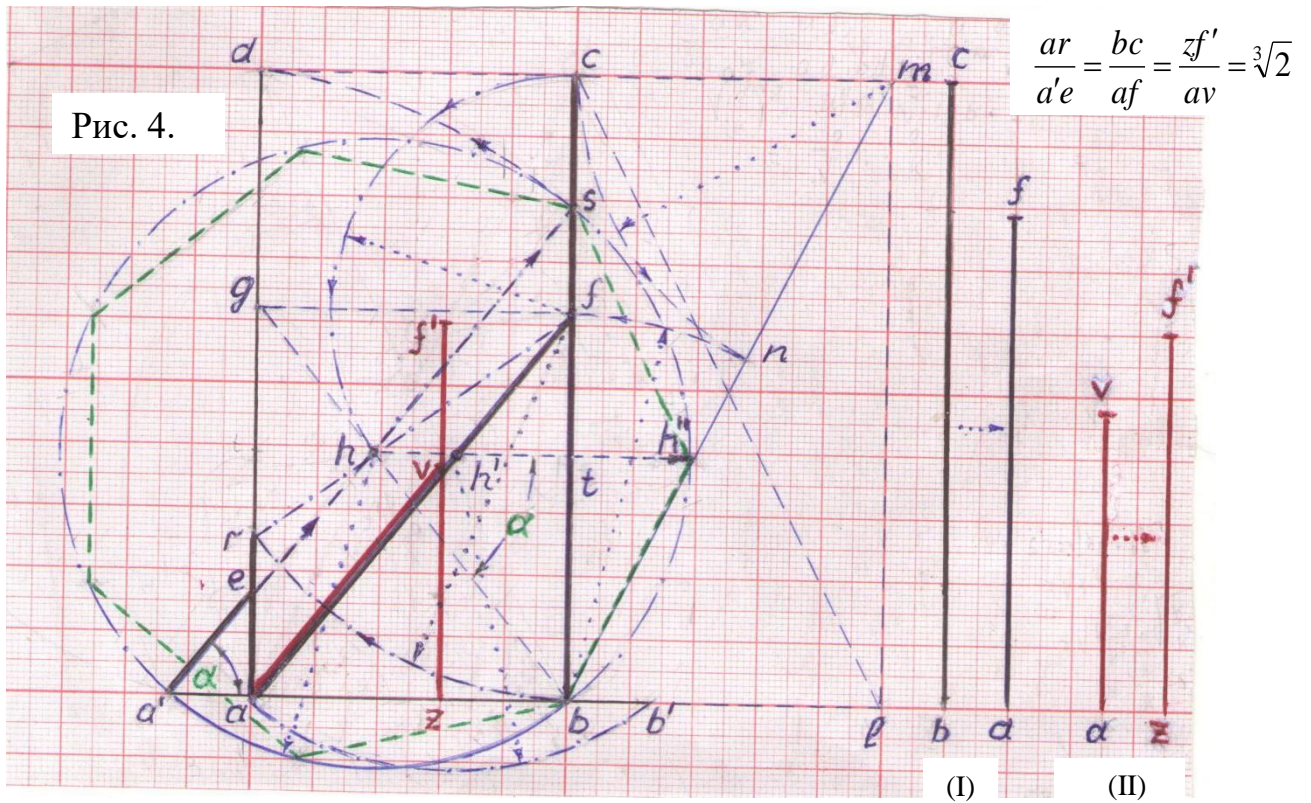 Рис. 4.
ar/a'e = bc/af = zf'/av = ∛2
d
c
m
c
s
f
g
f
f'
f'
n
v
h
v
h'
t
h"
α
r
e
α
a'
a
z
b
b'
l
b
a
a
z
(I)
(II)